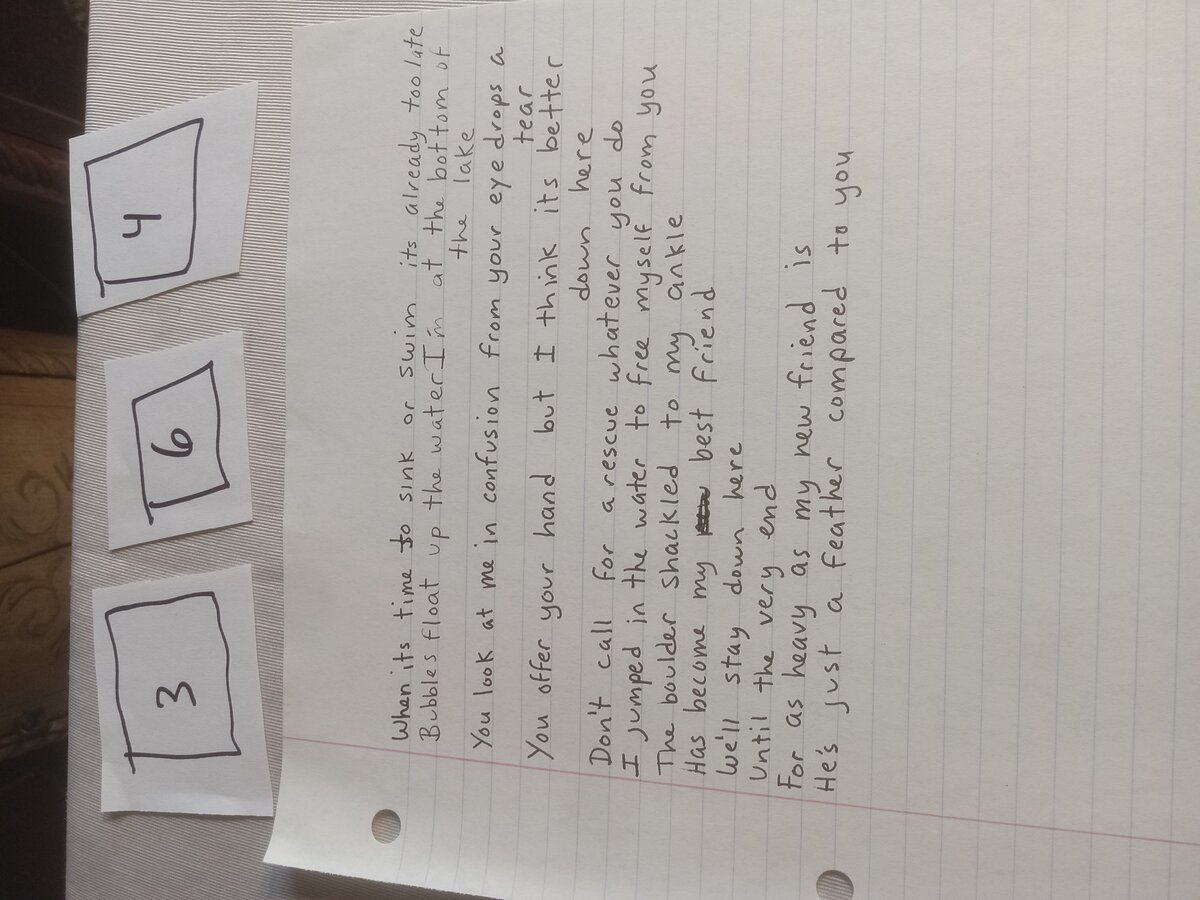 3
6
4
When its time to sink or swim its already too late
Bubbles float up the water I'm at the bottom of
the lake
You look at me in confusion from your eye drops a
tear
You offer your hand but I think its better
down here
Don't call for a rescue whatever you do
I jumped in the water to free myself from you
The boulder shackled to my ankle
Has become my best friend
We'll stay down here
Until the very end
For as heavy as my new friend is
He's just a feather compared to you